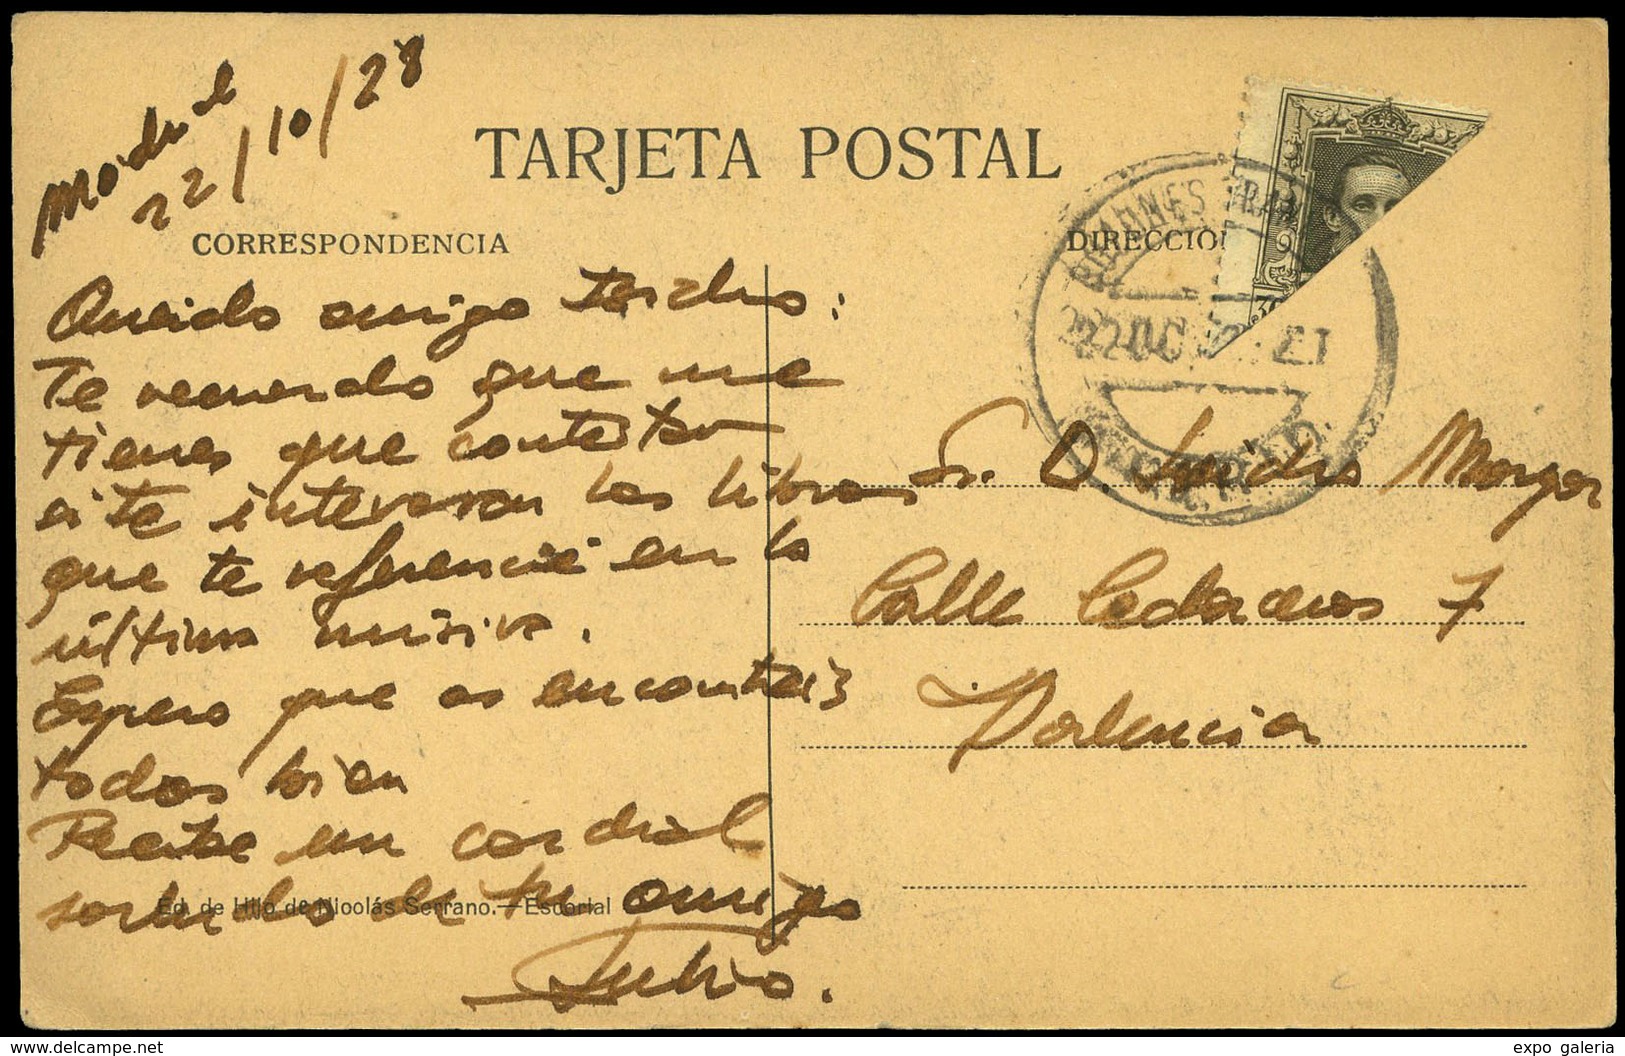 Madrid
22/10/28
TARJETA POSTAL
CORRESPONDENCIA
DIRECCIO
Querido amigo Isidro:
Te recuerdo que me
tienes que contestar
si te interesan los libros
que te referencié en la
última misiva.
Espero que os encontréis
todos bien
Recibe un cordial
saludo de tu amigo
Julio.
Ed. de Hijo de Nicolás Serrano.—Escorial
Sr. D Isidro Monzor
Calle Cedaceros 7
Valencia
22 OC
delcampe.net
expo galeria